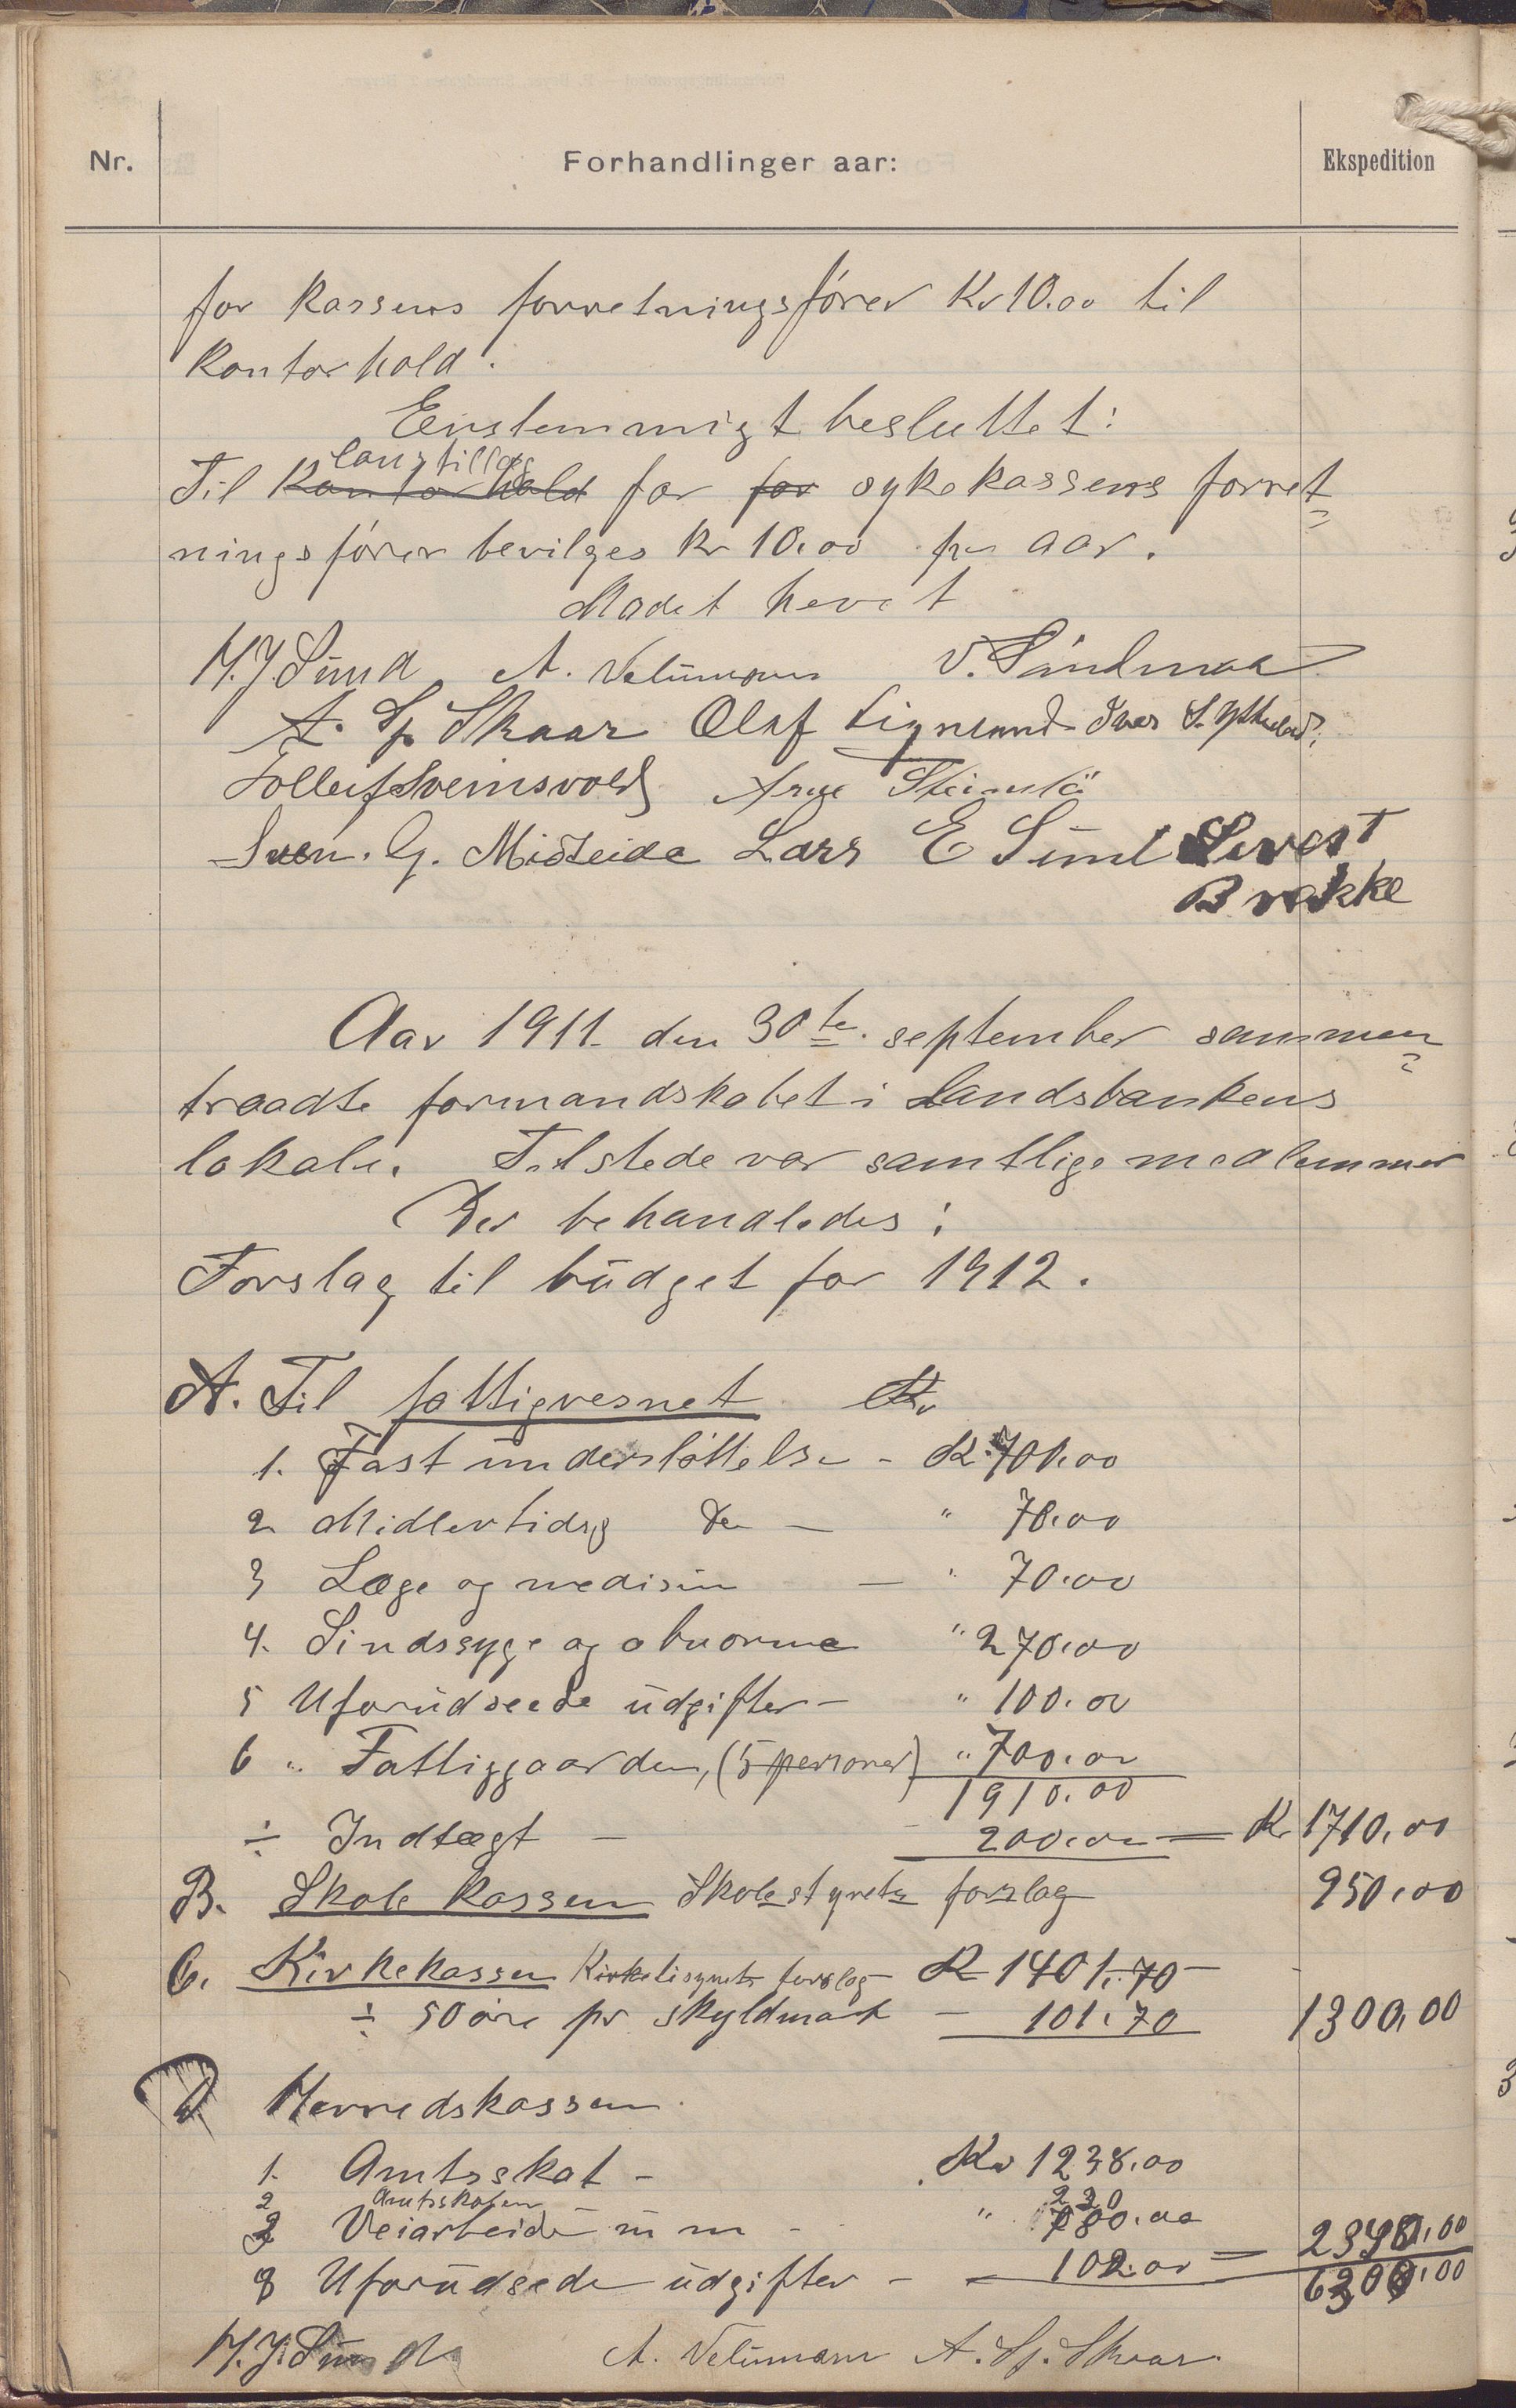 Nr.
Forhandlinger aar:
Ekspedition
for kassens forretningsfører Kr 10.00 til
kontorhold.
Enstemmigt besluttet:
lønstillæg
Til kontorhold for for sykekassens forret=
ningsfører bevilges kr 10.00 pr aar.
Mødet hevet
H.J. Sund A. Velumann V. Sandmoe
A. Sj. Skaar Olaf Sigmund Iver S.
Tolleif Sveinsvold Arne
Sven. G. Midteide Lars E Sund Sivert
Brekke
Aar 1911 den 30te september sammen=
traadte formandskabet i Landsbankens
lokale. Tilstede var samtlige medlemmer
Der behandledes:
Forslag til budget for 1912.
A. Til fattigvesnet Kr
1. Fast understøttelse - K. 701.00
2 Midlertidig do — " 70.00
3 Læge og medisin — " 70.00
4. Sindssyge og abnorme " 270.00
5 Uforudseede udgifter - " 100.00
6 " Fattiggaarden, (5 personer) " 700.00
1910.00
÷ Indtægt — 200.00 = Kr 1710,00
B. Skole kassen Skolestyrets forslag 950,00
C. Kirkekassen Kirketilsynets forslag K 1401.70
÷ 50 øre pr skyldmark - 101.70 1300,00
D Herredskassen
1. Amtsskat - Kr 1238.00
2 Amtsskolen 230
3 Veiarbeide m m - " 780.00
8 Uforudsede udgifter - 102.00 =
H.J. Sund A. Velumann A. Sj. Skaar.